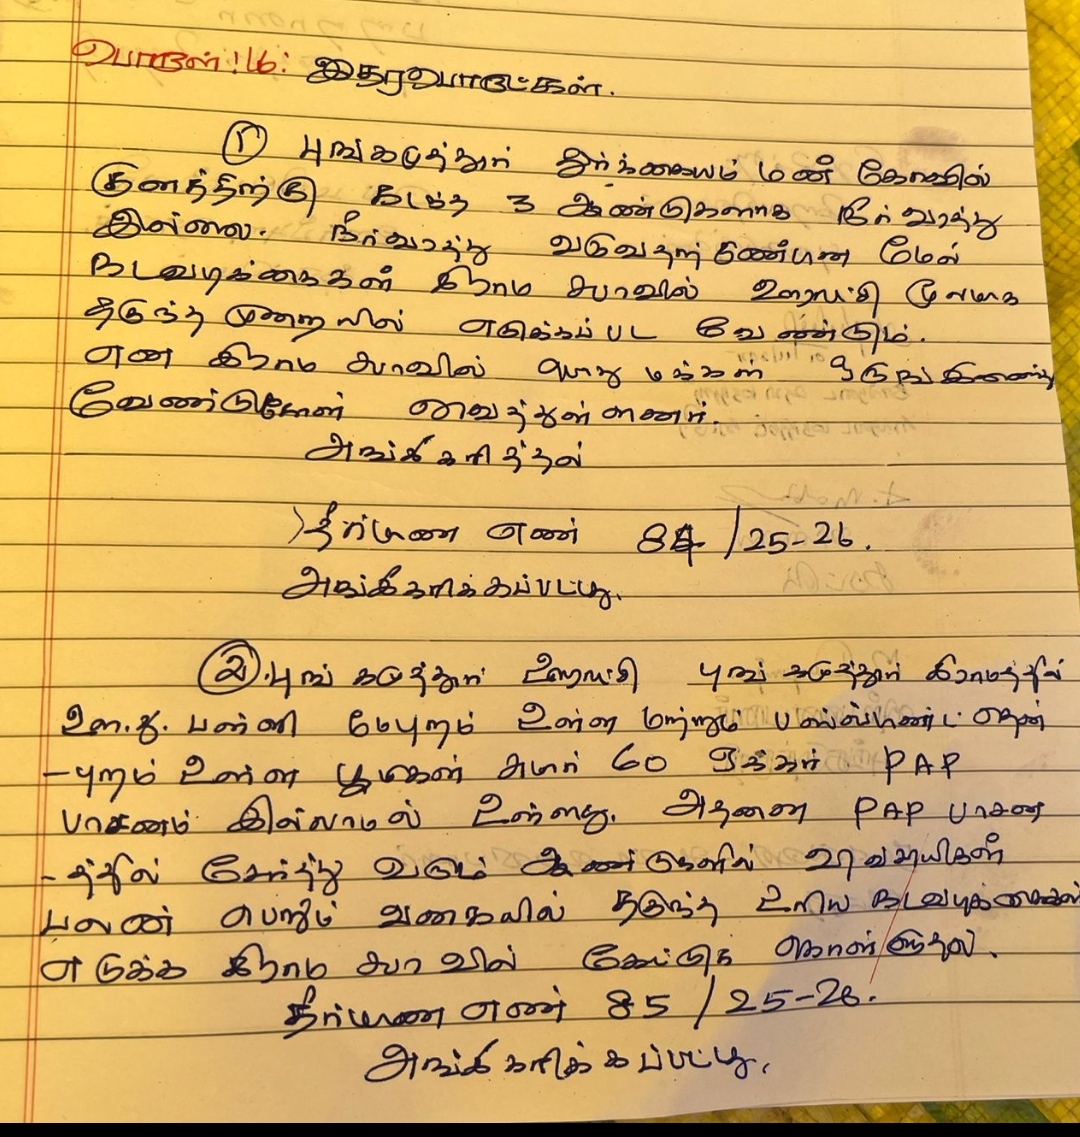 பொருள்:16: இதரபொருட்கள்.
① புங்கமுத்தூர் துர்க்கையம்மன் கோவில்
குளத்திற்கு கடந்த 3 ஆண்டுகளாக நீர்வரத்து
இல்லை. நீர்வரத்து வருவதற்குண்டான மேல்
நடவடிக்கைகள் கிராம சபாவில் ஊராட்சி மூலமாக
தகுந்த முறையில் எடுக்கப்பட வேண்டும்.
என கிராம சபாவில் பொது மக்கள் ஒருங்கிணைந்து
வேண்டுகோள் வைத்துள்ளனர்.
அங்கீகரித்தல்
தீர்மான எண் 84/25-26.
அங்கீகரிக்கப்பட்டது.
②. புங்கமுத்தூர் ஊராட்சி புங்கமுத்தூர் கிராமத்தில்
ஊ.ஒ. பள்ளி மேபுறம் உள்ள மற்றும் பஸ்ஸ்டாண்ட் தென்
-புறம் உள்ள பூமிகள் சுமார் 60 ஏக்கர் PAP
பாசனம் இல்லாமல் உள்ளது. அதனை PAP பாசன
-த்தில் சேர்த்து வரும் ஆண்டுகளில் விவசாயிகள்
பலன் பெறும் வகையில் தகுந்த உரிய நடவடிக்கைகள்
எடுக்க கிராம சபாவில் கேட்டுக் கொள்ளுதல்.
தீர்மான எண் 85/25-26.
அங்கீகரிக்கப்பட்டது.